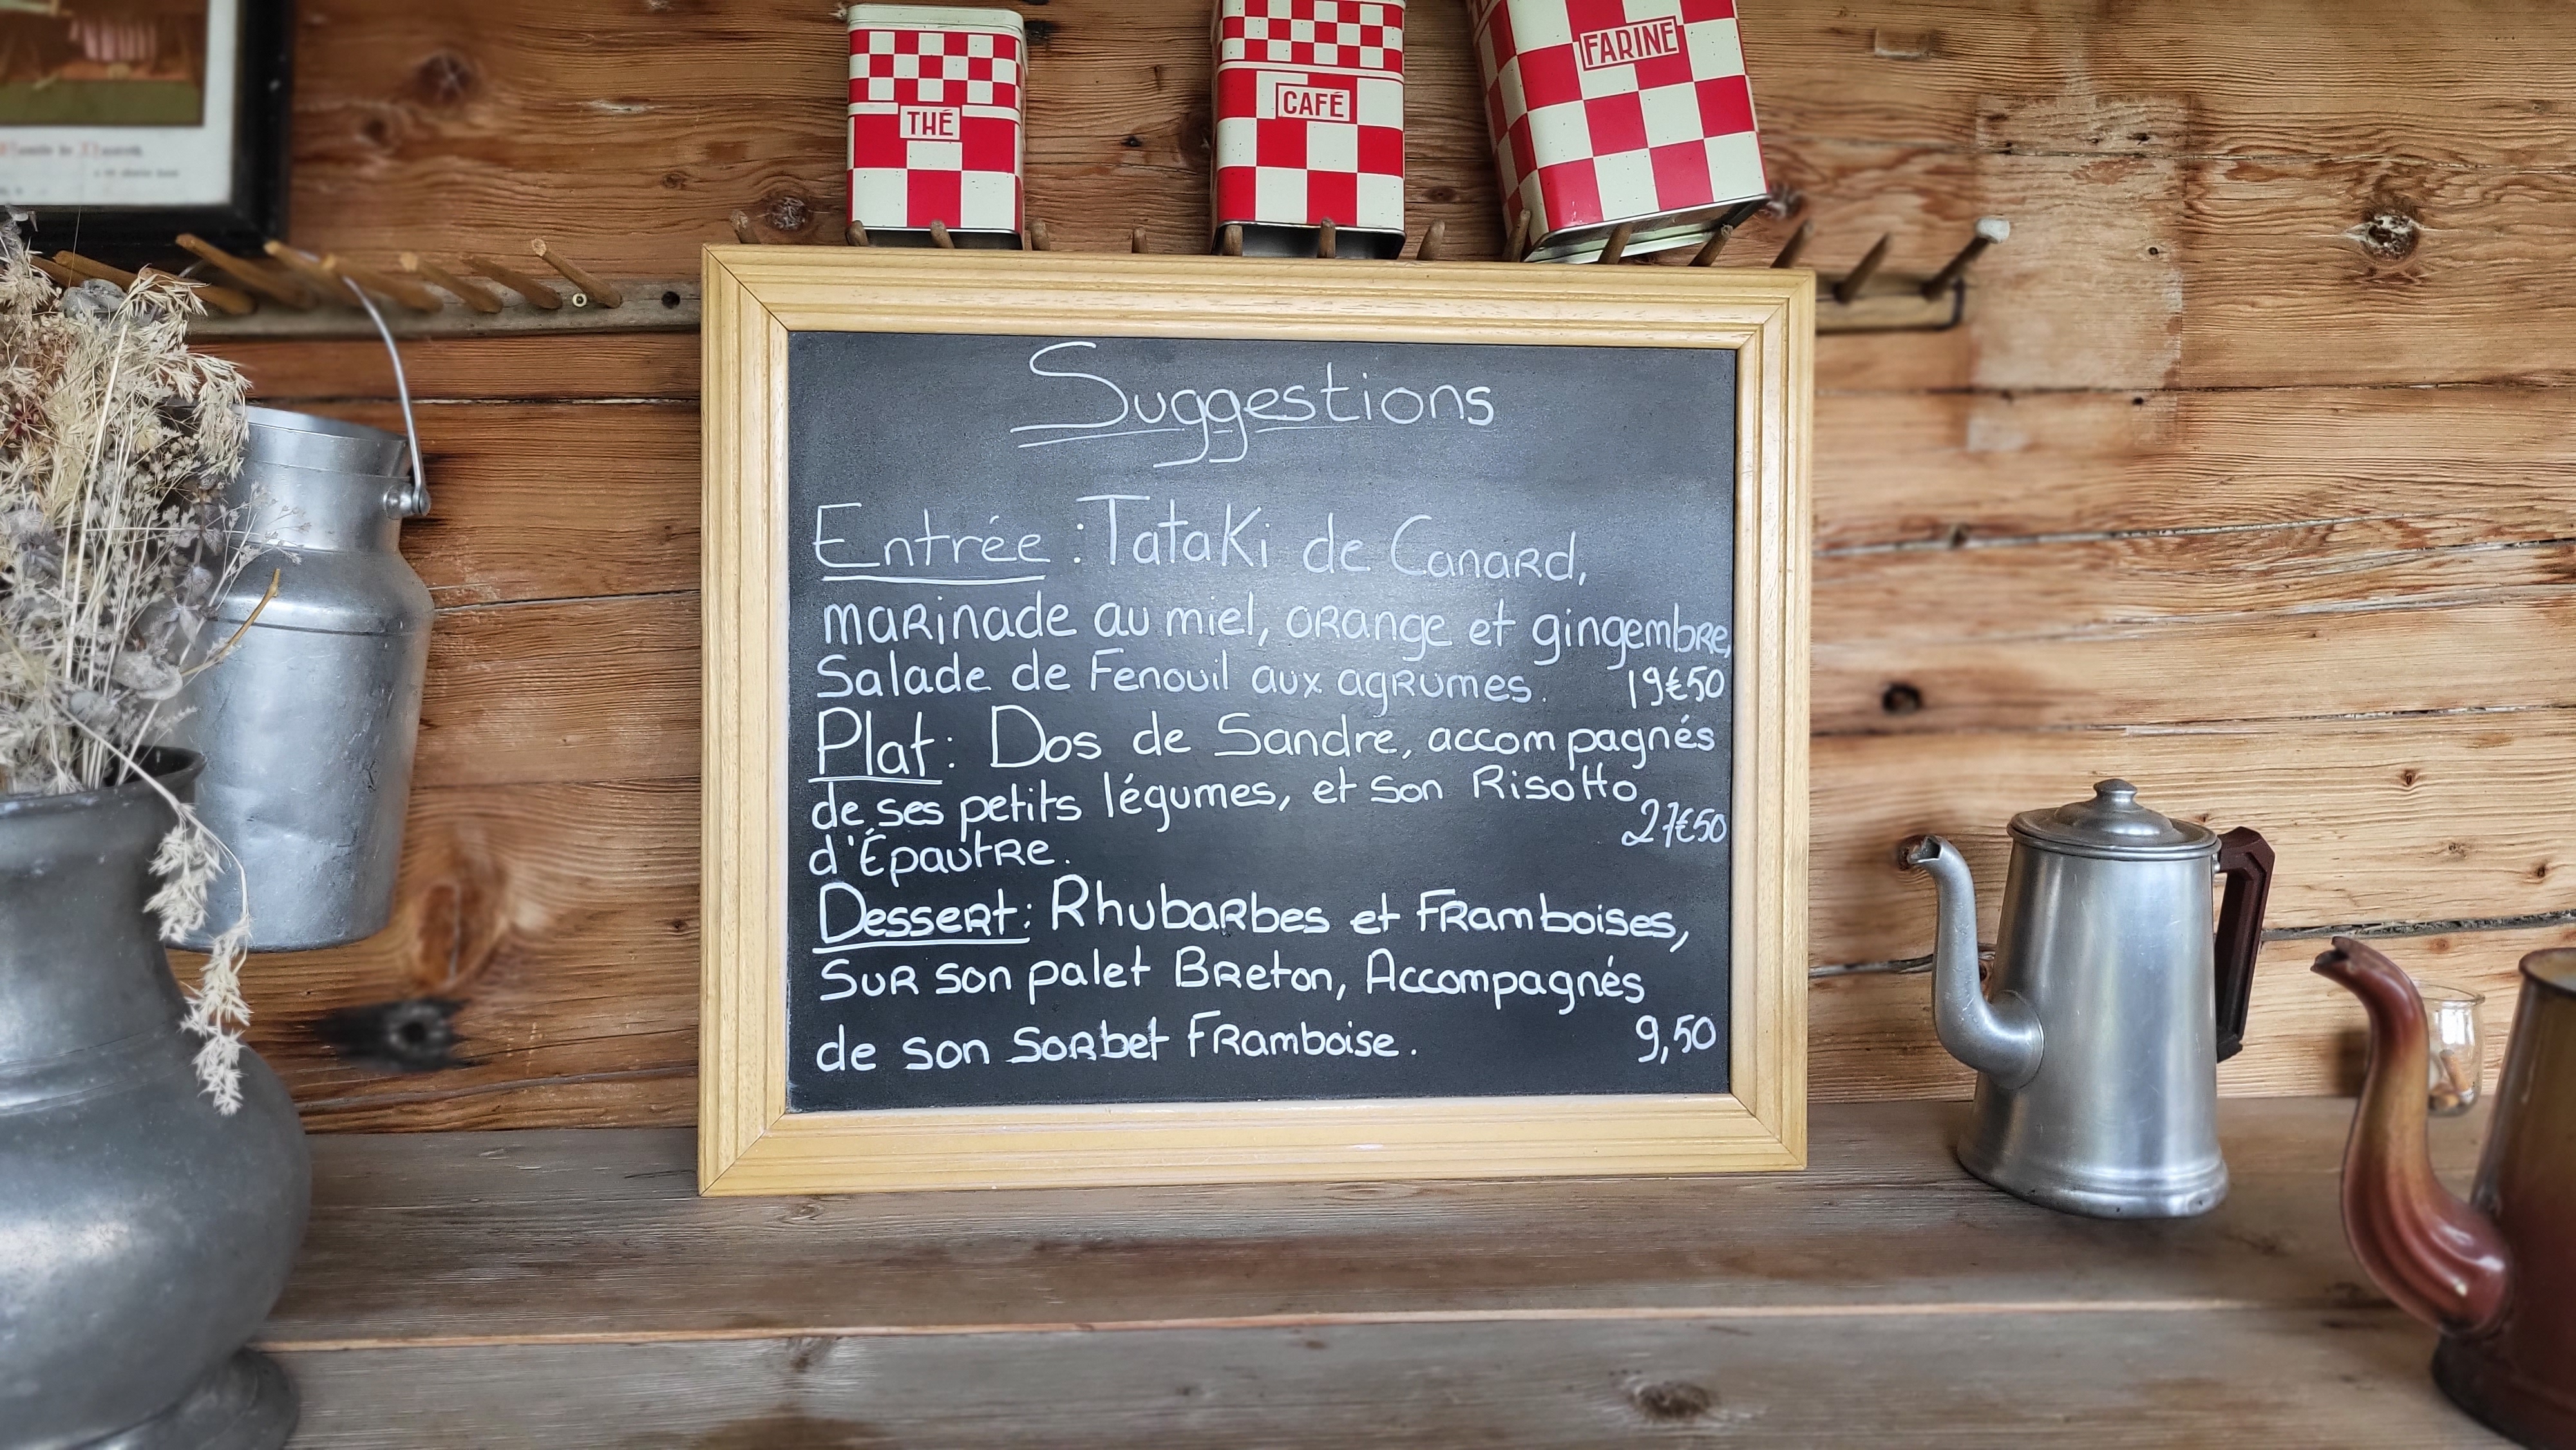 THÉ
CAFÉ
FARINE
Suggestions
Entrée : Tataki de Canard,
marinade au miel, orange et gingembre,
Salade de Fenouil aux agrumes. 19€50
Plat : Dos de Sandre, accompagnés
de ses petits légumes, et son Risotto
d'Épautre. 27€50
Dessert : Rhubarbes et Framboises,
Sur son palet Breton, Accompagnés
de son Sorbet Framboise. 9,50